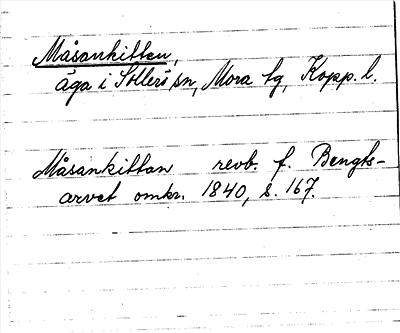 Måsankittan,
äga i Sollerö sn, Mora tg, Kopp. l.
Måsankittan revb. f. Bengts-
arvet omkr. 1840, s. 167.